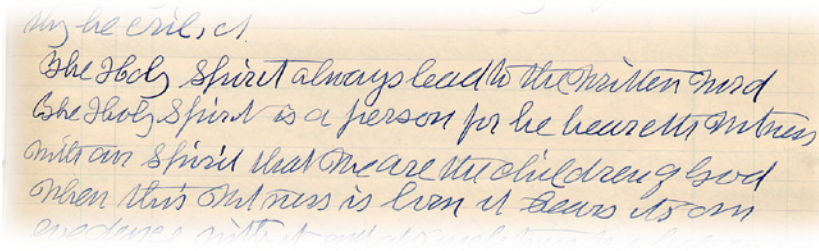 they be evil, ct.
The Holy Spirit always lead to the written word
The Holy Spirit is a person for he beareth witness
with our Spirit that we are the children of God
when this witness is born it bears its own
evidence with it and